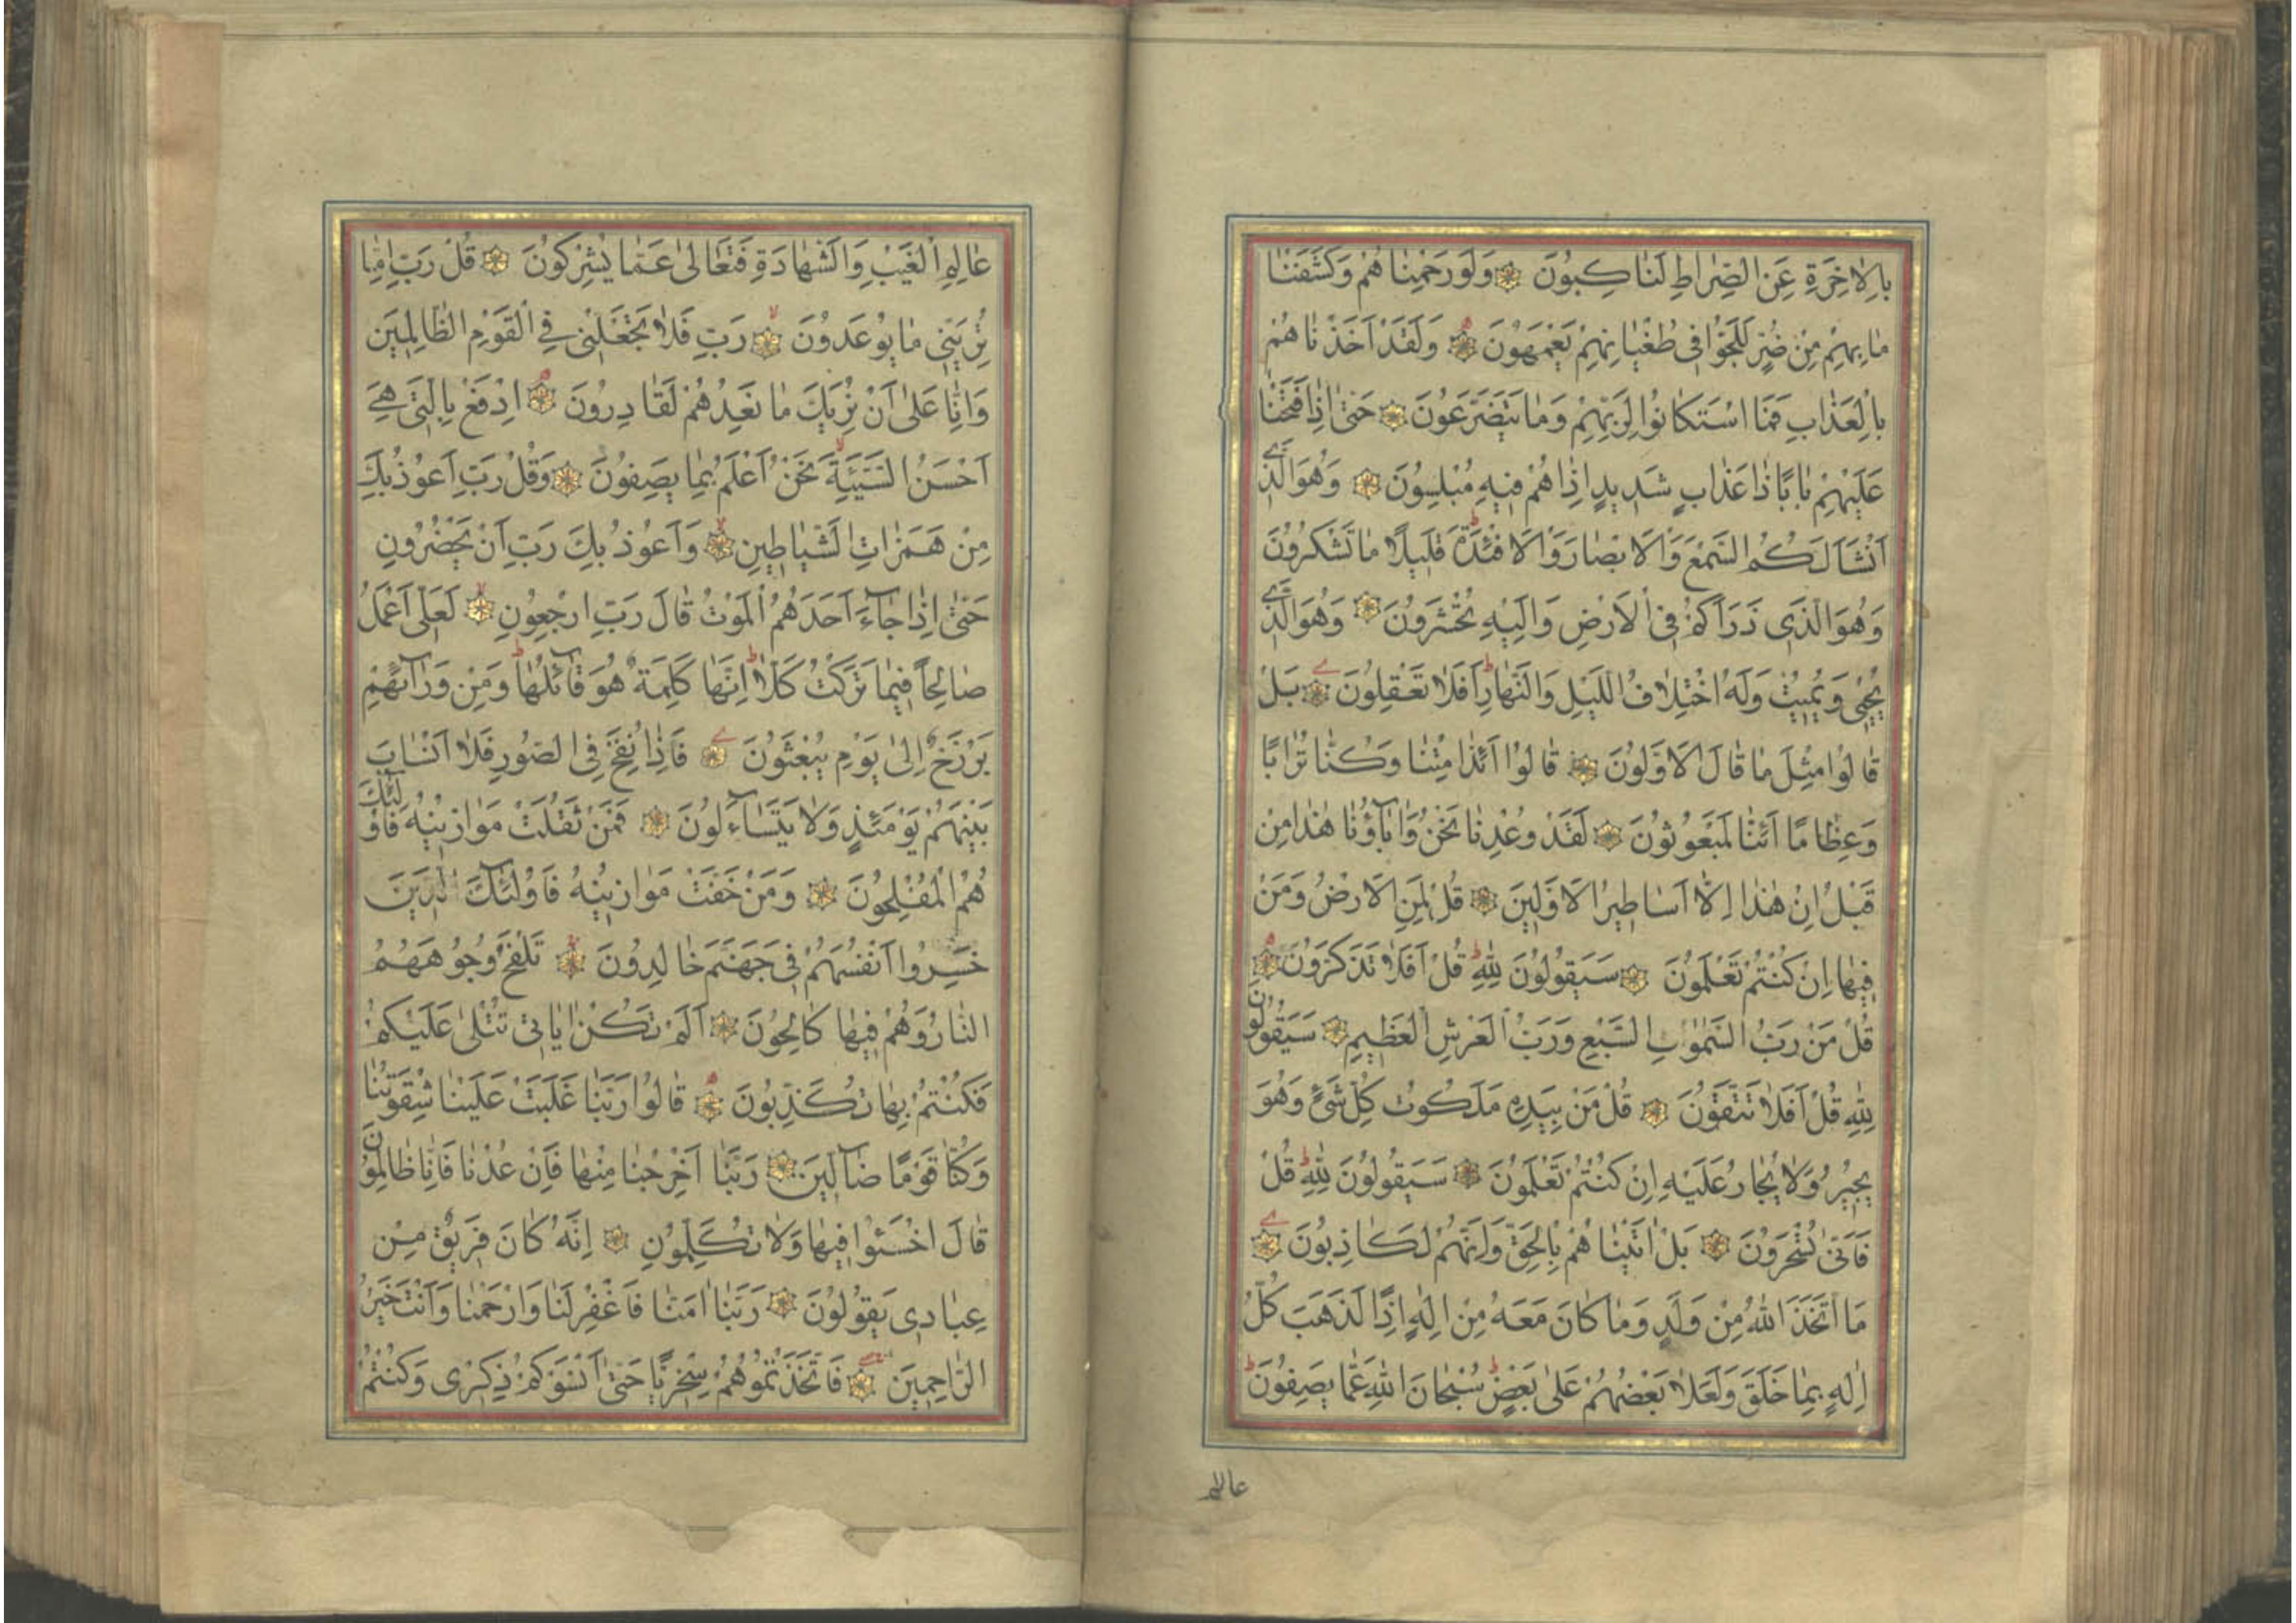 بِالْاٰخِرَةِ عَنِ الصِّرَاطِ لَنَاكِبُونَ وَلَوْ رَحِمْنَاهُمْ وَكَشَفْنَا
مَا بِهِمْ مِنْ ضُرٍّ لَلَجُّوا فِي طُغْيَانِهِمْ يَعْمَهُونَ وَلَقَدْ اَخَذْنَاهُمْ
بِالْعَذَابِ فَمَا اسْتَكَانُوا لِرَبِّهِمْ وَمَا يَتَضَرَّعُونَ حَتّٰى اِذَا فَتَحْنَا
عَلَيْهِمْ بَابًا ذَا عَذَابٍ شَدِيدٍ اِذَا هُمْ فِيهِ مُبْلِسُونَ وَهُوَ الَّذِي
اَنْشَاَ لَكُمُ السَّمْعَ وَالْاَبْصَارَ وَالْاَفْئِدَةَ قَلِيلًا مَا تَشْكُرُونَ
وَهُوَ الَّذِي ذَرَاَكُمْ فِي الْاَرْضِ وَاِلَيْهِ تُحْشَرُونَ وَهُوَ الَّذِي
يُحْيِي وَيُمِيتُ وَلَهُ اخْتِلَافُ اللَّيْلِ وَالنَّهَارِ اَفَلَا تَعْقِلُونَ بَلْ
قَالُوا مِثْلَ مَا قَالَ الْاَوَّلُونَ قَالُوا اَئِذَا مِتْنَا وَكُنَّا تُرَابًا
وَعِظَامًا اَئِنَّا لَمَبْعُوثُونَ لَقَدْ وُعِدْنَا نَحْنُ وَاٰبَاؤُنَا هٰذَا مِنْ
قَبْلُ اِنْ هٰذَا اِلَّا اَسَاطِيرُ الْاَوَّلِينَ قُلْ لِمَنِ الْاَرْضُ وَمَنْ
فِيهَا اِنْ كُنْتُمْ تَعْلَمُونَ سَيَقُولُونَ لِلّٰهِ قُلْ اَفَلَا تَذَكَّرُونَ
قُلْ مَنْ رَبُّ السَّمٰوَاتِ السَّبْعِ وَرَبُّ الْعَرْشِ الْعَظِيمِ سَيَقُولُونَ
لِلّٰهِ قُلْ اَفَلَا تَتَّقُونَ قُلْ مَنْ بِيَدِهِ مَلَكُوتُ كُلِّ شَيْءٍ وَهُوَ
يُجِيرُ وَلَا يُجَارُ عَلَيْهِ اِنْ كُنْتُمْ تَعْلَمُونَ سَيَقُولُونَ لِلّٰهِ قُلْ
فَاَنّٰى تُسْحَرُونَ بَلْ اَتَيْنَاهُمْ بِالْحَقِّ وَاِنَّهُمْ لَكَاذِبُونَ
مَا اتَّخَذَ اللّٰهُ مِنْ وَلَدٍ وَمَا كَانَ مَعَهُ مِنْ اِلٰهٍ اِذًا لَذَهَبَ كُلُّ
اِلٰهٍ بِمَا خَلَقَ وَلَعَلَا بَعْضُهُمْ عَلٰى بَعْضٍ سُبْحَانَ اللّٰهِ عَمَّا يَصِفُونَ
عالم
عَالِمِ الْغَيْبِ وَالشَّهَادَةِ فَتَعَالٰى عَمَّا يُشْرِكُونَ قُلْ رَبِّ اِمَّا
تُرِيَنِّي مَا يُوعَدُونَ رَبِّ فَلَا تَجْعَلْنِي فِي الْقَوْمِ الظَّالِمِينَ
وَاِنَّا عَلٰى اَنْ نُرِيَكَ مَا نَعِدُهُمْ لَقَادِرُونَ اِدْفَعْ بِالَّتِي هِيَ
اَحْسَنُ السَّيِّئَةَ نَحْنُ اَعْلَمُ بِمَا يَصِفُونَ وَقُلْ رَبِّ اَعُوذُ بِكَ
مِنْ هَمَزَاتِ الشَّيَاطِينِ وَاَعُوذُ بِكَ رَبِّ اَنْ يَحْضُرُونِ
حَتّٰى اِذَا جَاءَ اَحَدَهُمُ الْمَوْتُ قَالَ رَبِّ ارْجِعُونِ لَعَلِّي اَعْمَلُ
صَالِحًا فِيمَا تَرَكْتُ كَلَّا اِنَّهَا كَلِمَةٌ هُوَ قَائِلُهَا وَمِنْ وَرَائِهِمْ
بَرْزَخٌ اِلٰى يَوْمِ يُبْعَثُونَ فَاِذَا نُفِخَ فِي الصُّورِ فَلَا اَنْسَابَ
بَيْنَهُمْ يَوْمَئِذٍ وَلَا يَتَسَاءَلُونَ فَمَنْ ثَقُلَتْ مَوَازِينُهُ فَاُولٰئِكَ
هُمُ الْمُفْلِحُونَ وَمَنْ خَفَّتْ مَوَازِينُهُ فَاُولٰئِكَ الَّذِينَ
خَسِرُوا اَنْفُسَهُمْ فِي جَهَنَّمَ خَالِدُونَ تَلْفَحُ وُجُوهَهُمُ
النَّارُ وَهُمْ فِيهَا كَالِحُونَ اَلَمْ تَكُنْ اٰيَاتِي تُتْلٰى عَلَيْكُمْ
فَكُنْتُمْ بِهَا تُكَذِّبُونَ قَالُوا رَبَّنَا غَلَبَتْ عَلَيْنَا شِقْوَتُنَا
وَكُنَّا قَوْمًا ضَالِّينَ رَبَّنَا اَخْرِجْنَا مِنْهَا فَاِنْ عُدْنَا فَاِنَّا ظَالِمُونَ
قَالَ اخْسَئُوا فِيهَا وَلَا تُكَلِّمُونِ اِنَّهُ كَانَ فَرِيقٌ مِنْ
عِبَادِي يَقُولُونَ رَبَّنَا اٰمَنَّا فَاغْفِرْ لَنَا وَارْحَمْنَا وَاَنْتَ خَيْرُ
الرَّاحِمِينَ فَاتَّخَذْتُمُوهُمْ سِخْرِيًّا حَتّٰى اَنْسَوْكُمْ ذِكْرِي وَكُنْتُمْ